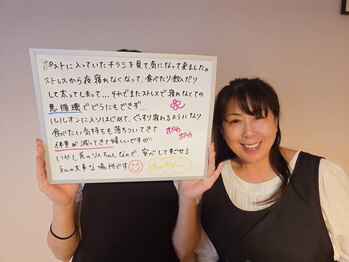 ポストに入っていたチラシを見て、気になって来ました。
ストレスから夜寝れなくなって、食べたり飲んだり
して太ってしまって…それでまたストレスで寝れなくての
悪循環でどうにもできず…
ルルオンに入りはじめて、ぐっすり寝れるようになり
食べたい気持ちも落ちついてきて
体重が減ってきて嬉しいです
いやし系のりんちゃんなので、安心して話せる
私の大事な場所です